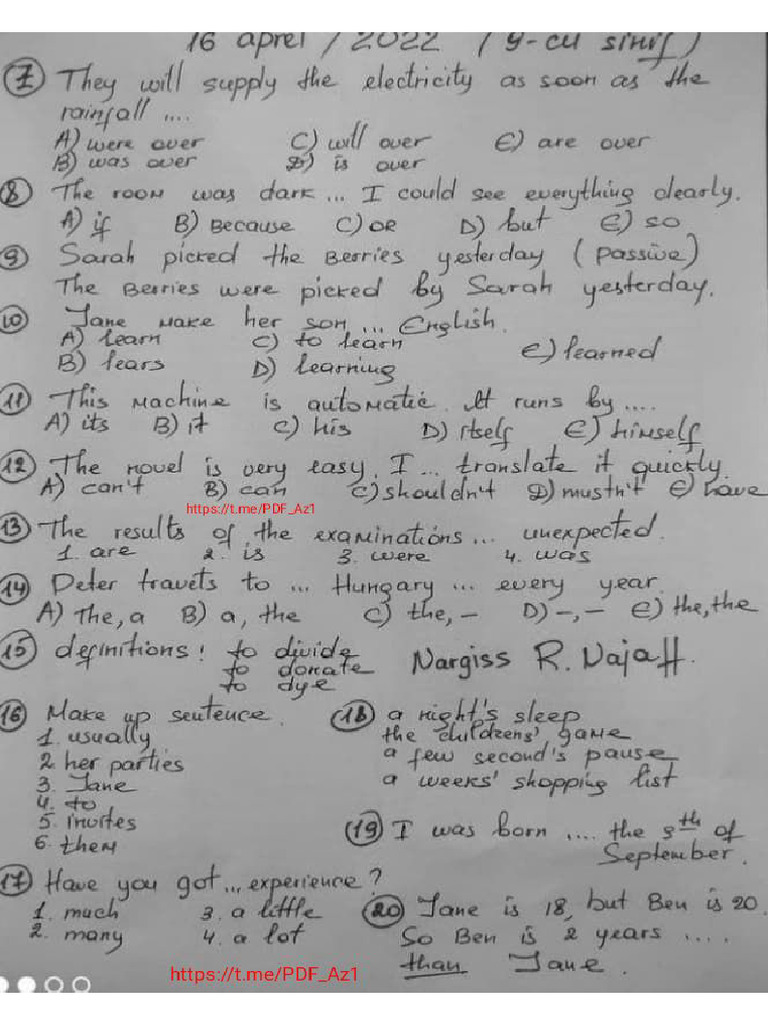 16 aprel / 2022 ( 9-cu sinif )
7 They will supply the electricity as soon as the
rainfall ....
A) were over C) will over E) are over
B) was over D) is over
8 The room was dark ... I could see everything clearly.
A) if B) Because C) or D) but E) so
9 Sarah picked the Berries yesterday ( Passive)
The Berries were picked by Sarah yesterday.
10 Jane make her son ... English.
A) learn C) to learn E) learned
B) lears D) learning
11 This machine is automatic. It runs by ....
A) its B) it C) his D) itself E) himself
12 The novel is very easy. I ... translate it quickly.
A) can't B) can C) shouldn't D) mustn't E) have
https://t.me/PDF_Az1
13 The results of the examinations ... unexpected.
1. are 2. is 3. were 4. was
14 Peter travels to ... Hungary ... every year.
A) The, a B) a, the C) the, – D) –, – E) the, the
15 definitions: to divide
to donate
to dye
Nargiss R. Najaff.
16 Make up sentence.
1. usually
2. her parties
3. Jane
4. to
5. invites
6. them
17 Have you got ... experience?
1. much 3. a little
2. many 4. a lot
18 a night's sleep
the childrens' game
a few second's pause
a weeks' shopping list
19 I was born .... the 3th of
September.
20 Jane is 18, but Ben is 20.
So Ben is 2 years ....
than Jane.
https://t.me/PDF_Az1